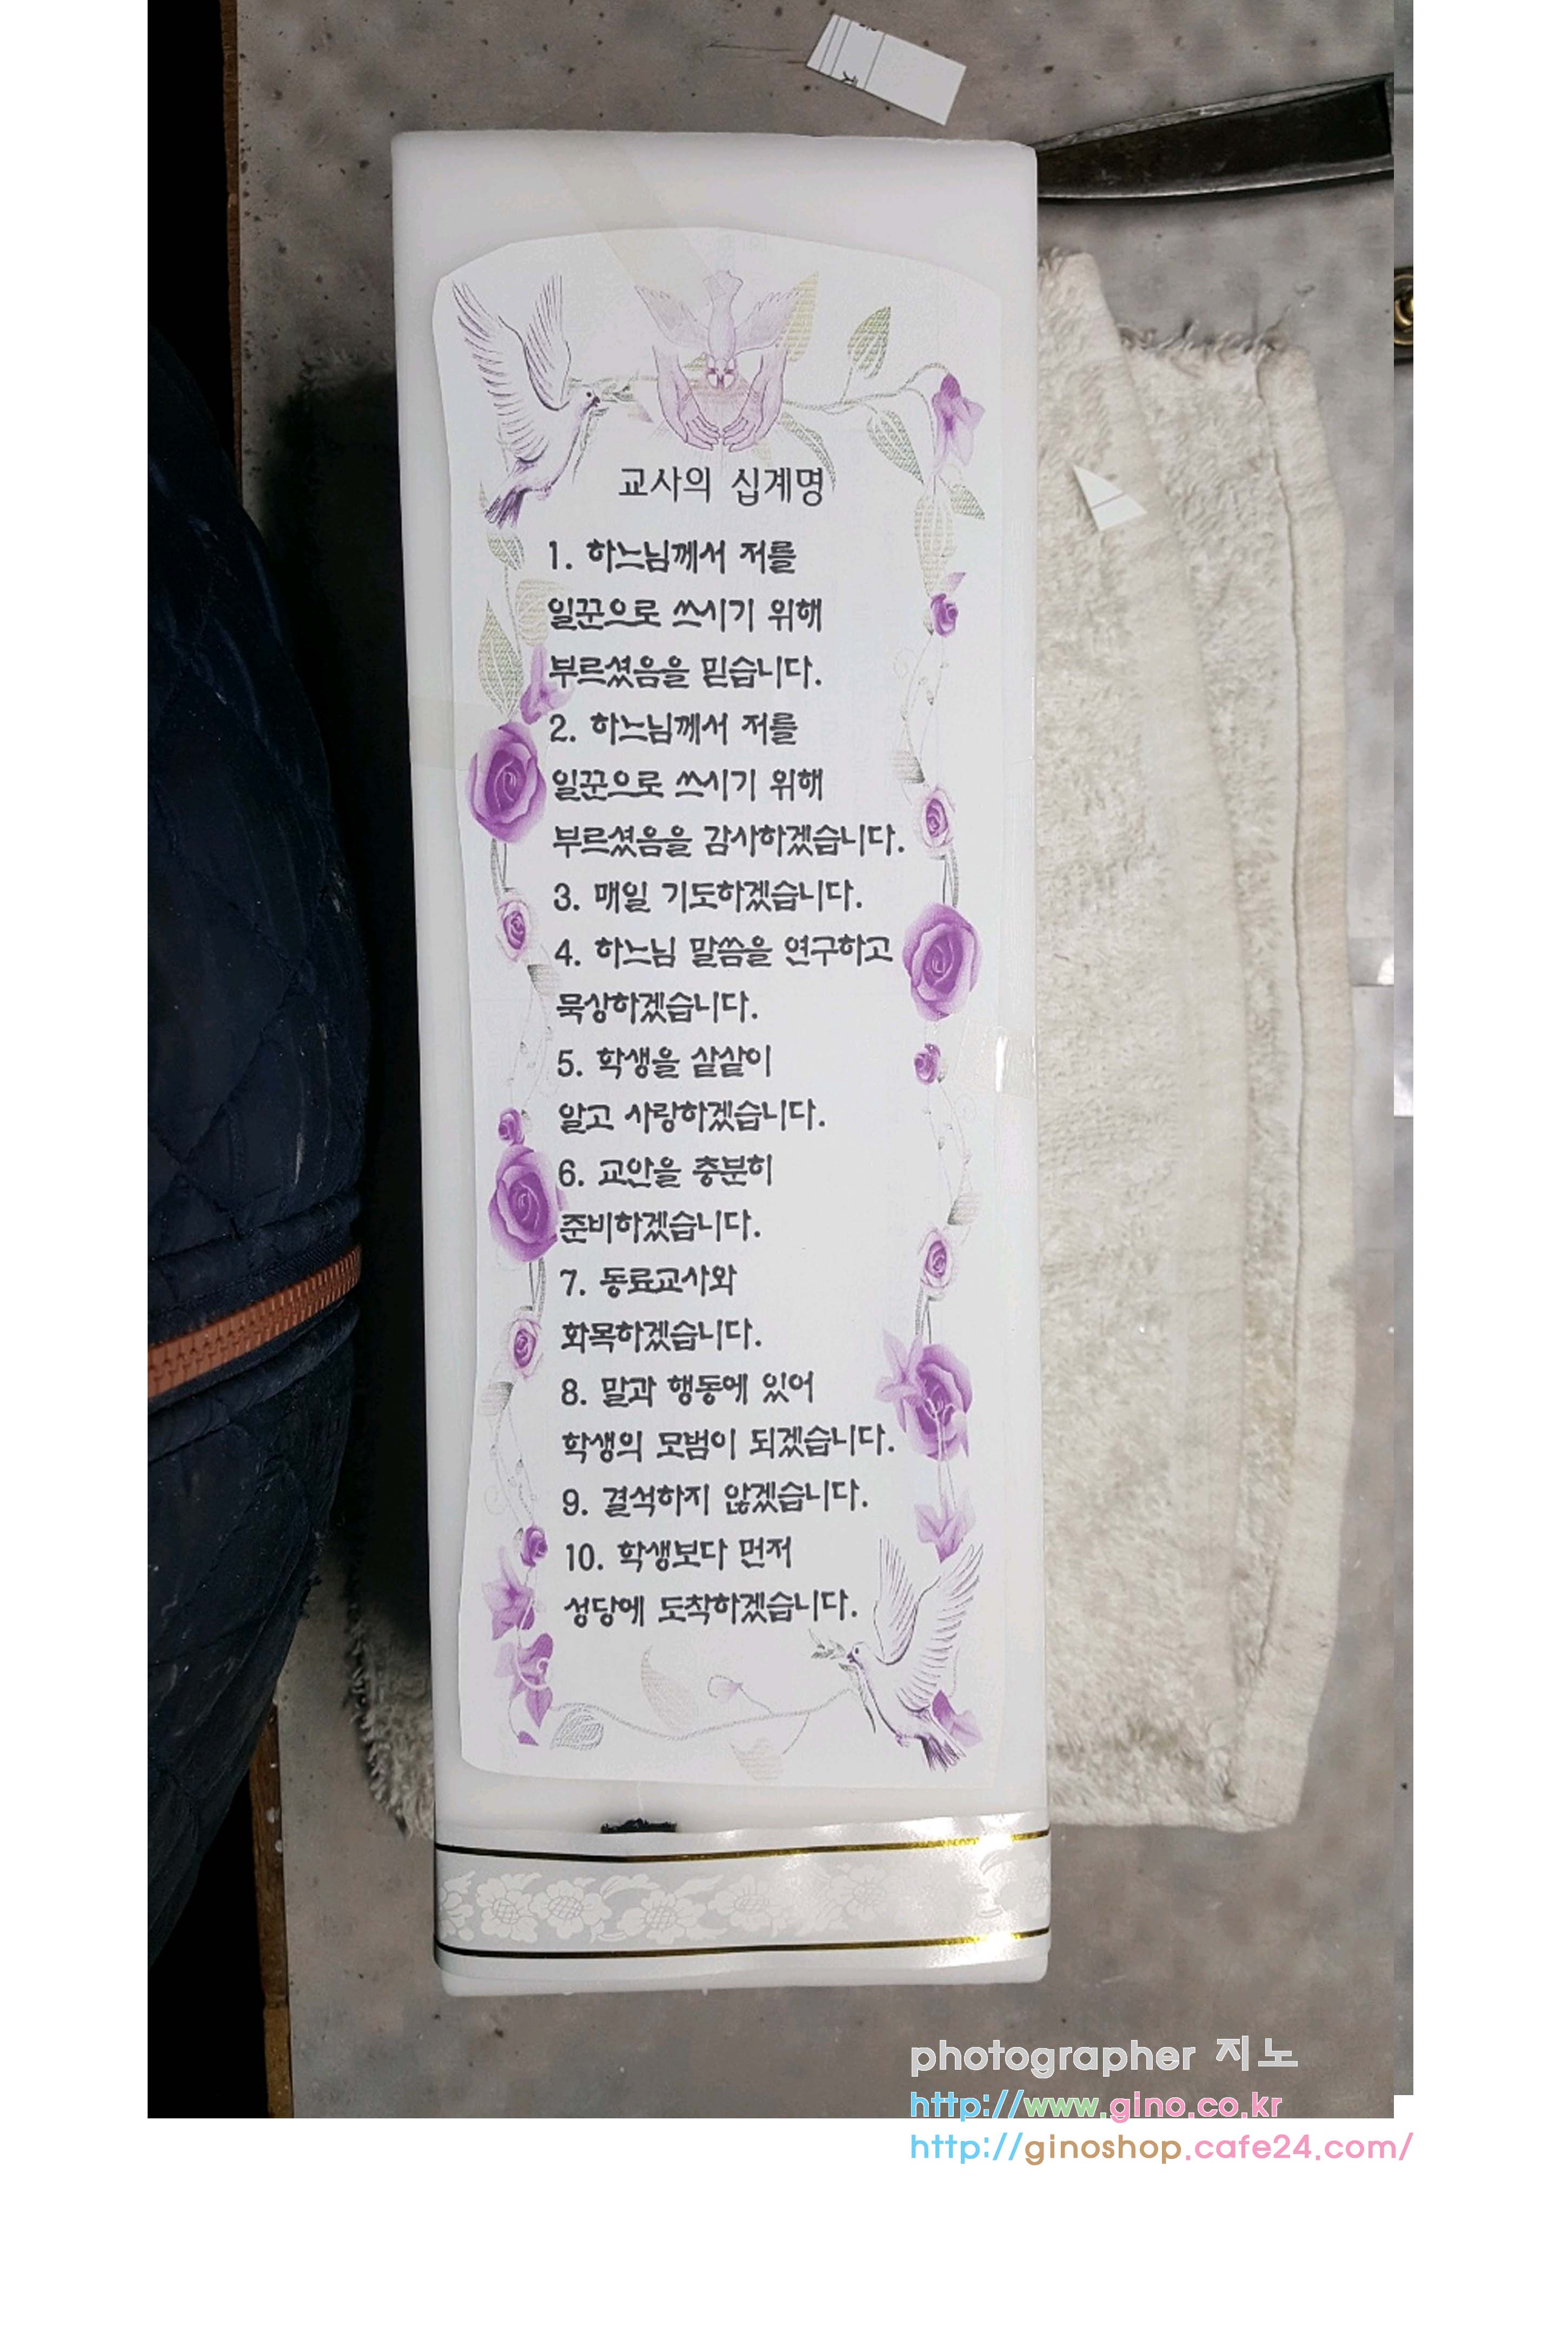 교사의 십계명
1. 하느님께서 저를
일꾼으로 쓰시기 위해
부르셨음을 믿습니다.
2. 하느님께서 저를
일꾼으로 쓰시기 위해
부르셨음을 감사하겠습니다.
3. 매일 기도하겠습니다.
4. 하느님 말씀을 연구하고
묵상하겠습니다.
5. 학생을 샅샅이
알고 사랑하겠습니다.
6. 교안을 충분히
준비하겠습니다.
7. 동료교사와
화목하겠습니다.
8. 말과 행동에 있어
학생의 모범이 되겠습니다.
9. 결석하지 않겠습니다.
10. 학생보다 먼저
성당에 도착하겠습니다.
photographer 지노
http://www.gino.co.kr
http://ginoshop.cafe24.com/